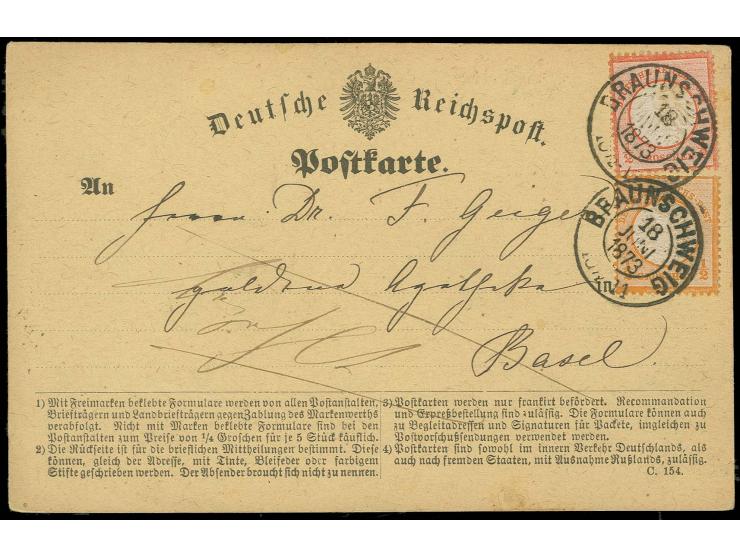 Deutsche Reichspost.
Postkarte.
An
Herrn Dr. F. Geiger
goldene Apotheke
Basel.
BRAUNSCHWEIG
18
JUNI
1873
BRAUNSCHWEIG
18
JUNI
1873
1/2
1) Mit Freimarken beklebte Formulare werden von allen Postanstalten,
Briefträgern und Landbriefträgern gegen Zahlung des Markenwerths
verabfolgt. Nicht mit Marken beklebte Formulare sind bei den
Postanstalten zum Preise von 1/4 Groschen für je 5 Stück käuflich.
2) Die Rückseite ist für die brieflichen Mittheilungen bestimmt. Diese
können, gleich der Adresse, mit Tinte, Bleifeder oder farbigem
Stifte geschrieben werden. Der Absender braucht sich nicht zu nennen.
3) Postkarten werden nur frankirt befördert. Recommandation
und Expreßbestellung sind zulässig. Die Formulare können auch
zu Begleitadressen und Signaturen für Packete, imgleichen zu
Postvorschußsendungen verwendet werden.
4) Postkarten sind sowohl im innern Verkehr Deutschlands, als
auch nach fremden Staaten, mit Ausnahme Rußlands, zulässig.
C. 154.